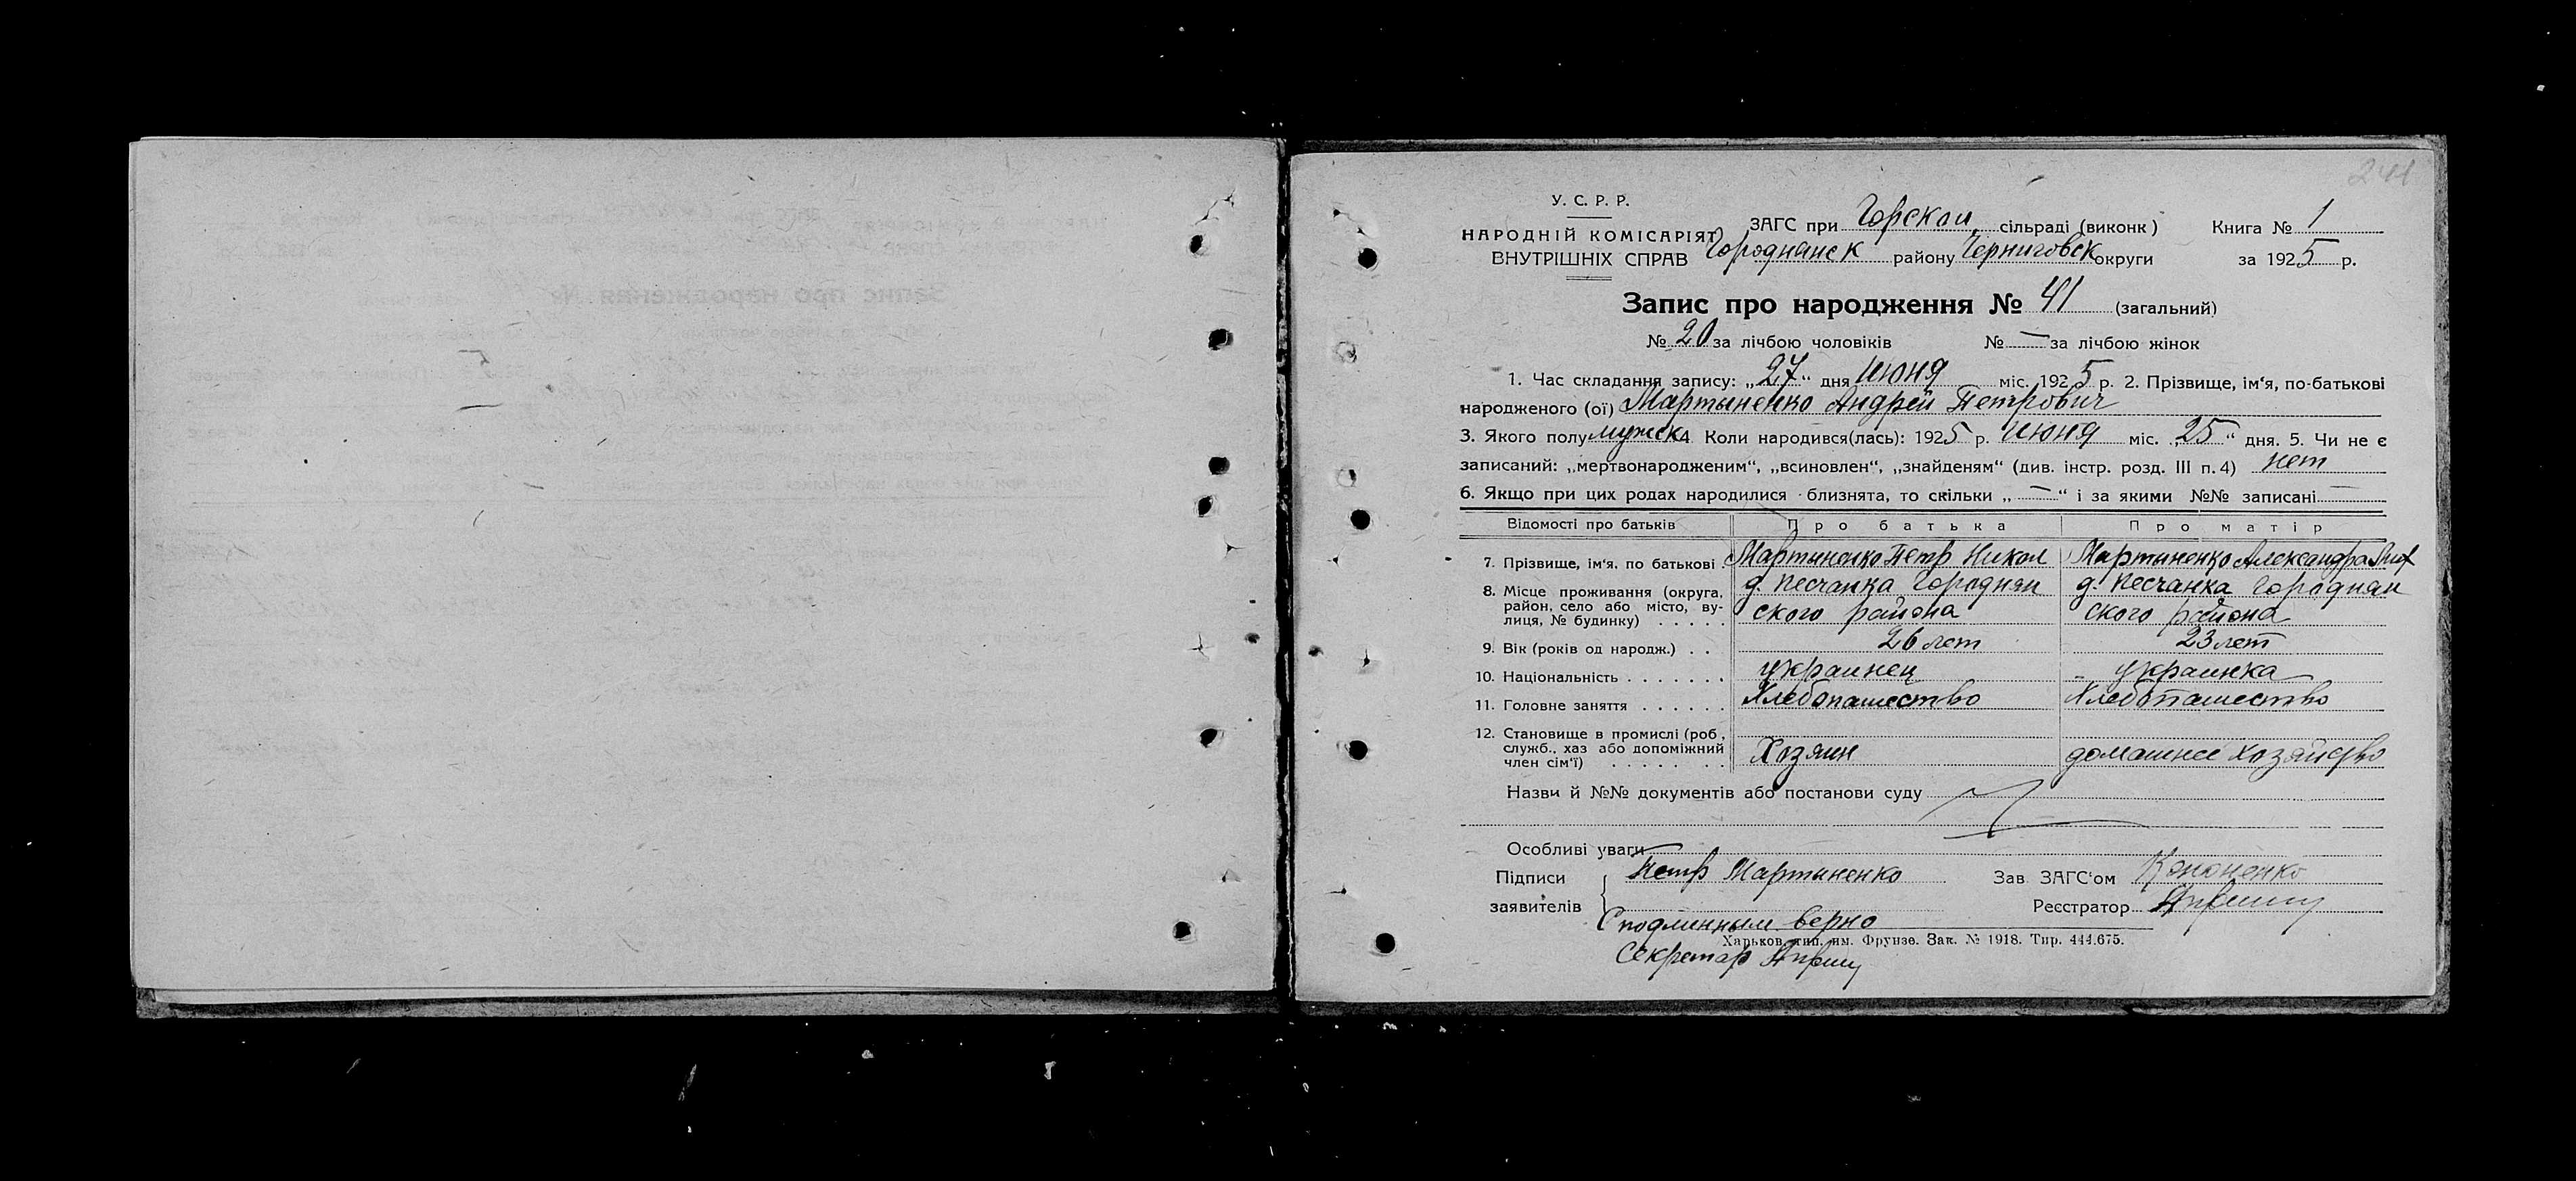 241
У. С. Р. Р.
НАРОДНІЙ КОМІСАРІЯТ
ВНУТРІШНІХ СПРАВ
ЗАГС при Горской сільраді (виконк) Книга № 1
Городнянск району Черниговск округи за 1925 р.
Запис про народження № 41 (загальний)
№ 20 за лічбою чоловіків № — за лічбою жінок
1. Час складання запису: „27“ дня июня міс. 1925 р. 2. Прізвище, ім‘я, по-батькові
народженого (ої) Мартыненко Андрей Петрович
3. Якого полу мужск 4 Коли народився(лась): 1925 р. июня міс. „25“ дня. 5. Чи не є
записаний: „мертвонародженим“, „всиновлен“, „знайденям“ (див. інстр. розд. III п. 4) нет
6. Якщо при цих родах народилися близнята, то скільки „—“ і за якими №№ записані —
Відомості про батьків Про батька Про матір
7. Прізвище, ім‘я, по батькові Мартыненко Петр Никол Мартыненко Александра
8. Місце проживання (округа, район, село або місто, вулиця, № будинку) д. Песчанка Городнян д. Песчанка Городнян
ского района ского района
9. Вік (років од народж.) 26 лет 23 лет
10. Національність украинец украинка
11. Головне заняття Хлебопашество Хлебопашество
12. Становище в промислі (роб., служб., хаз або допоміжний член сім‘ї) Хозяин домашнее хозяйство
Назви й №№ документів або постанови суду
Особливі уваги
Підписи Петр Мартыненко Зав ЗАГС‘ом Кононенко
заявителів Реєстратор
С подлинным верно
Харьков, тип. им. Фрунзе. Зак. № 1918. Тир. 444.675.
Секретар